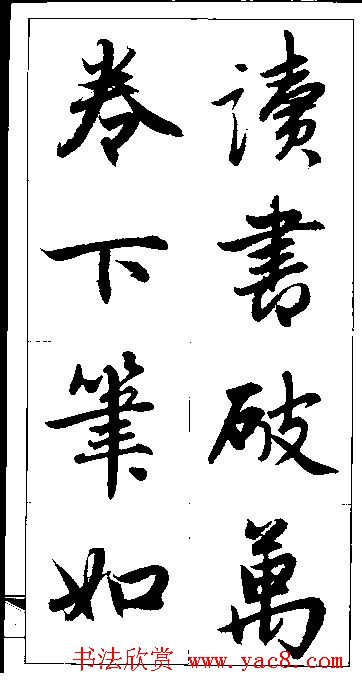 讀書破萬
卷下筆如
书法欣赏 www.yac8.com